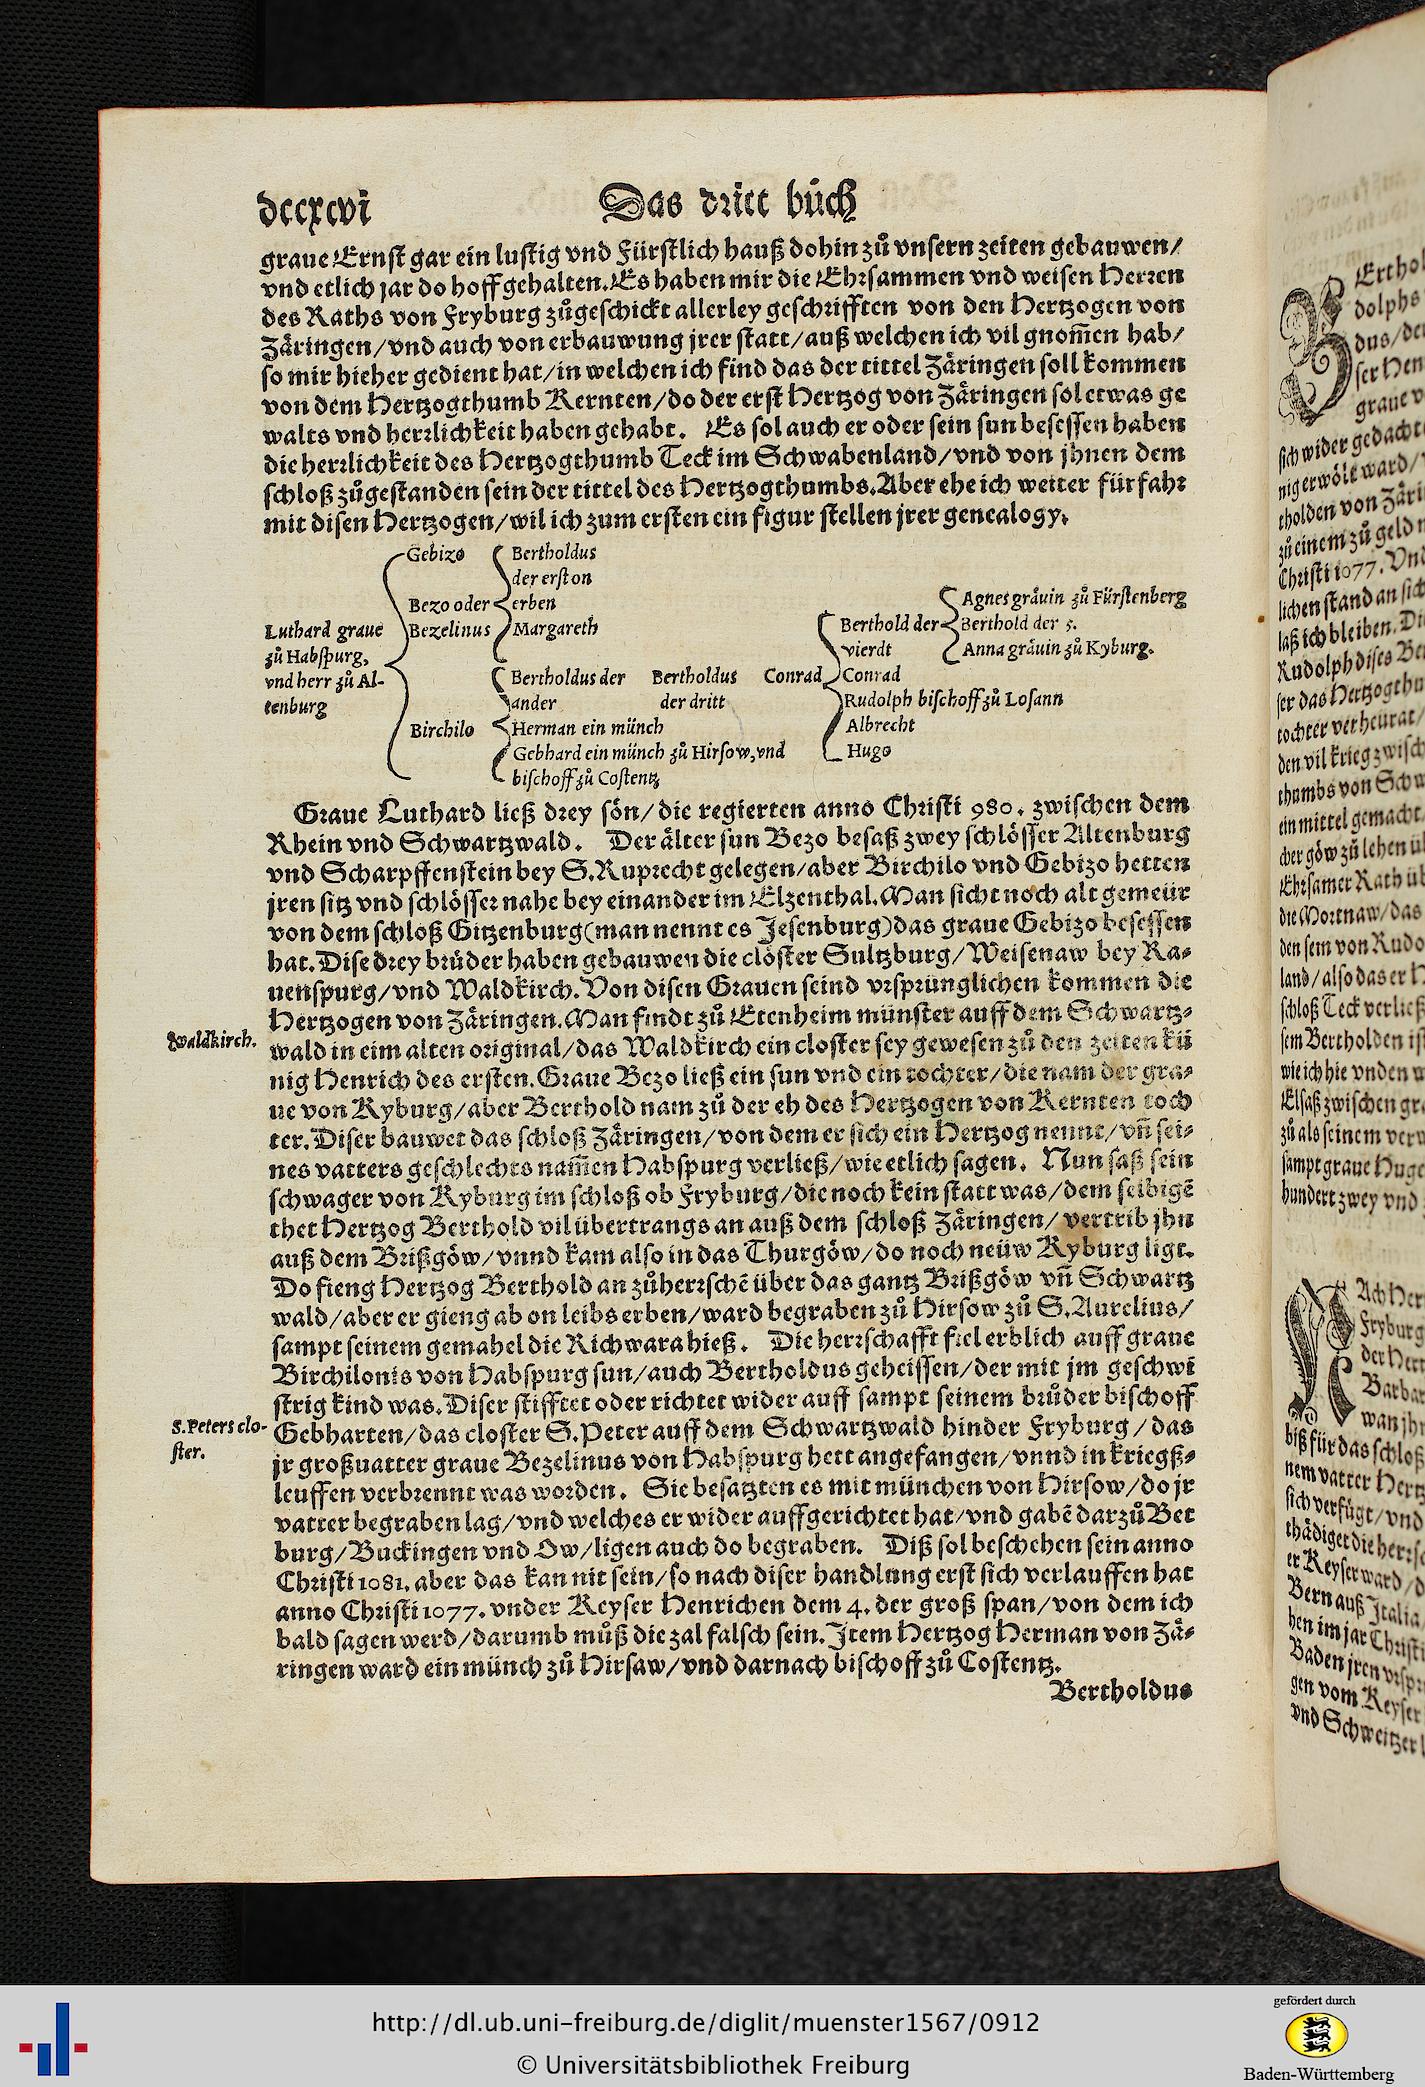 dccxcvi
Das dritt bůch
graue Ernst gar ein lustig vnd Fürstlich hauß dohin zů vnsern zeiten gebauwen/
vnd etlich jar do hoff gehalten. Es haben mir die Ehrsammen vnd weisen Herren
des Raths von Fryburg zůgeschickt allerley geschrifften von den Hertzogen von
Zäringen/vnd auch von erbauwung jrer statt/auß welchen ich vil gnom̃en hab/
so mir hieher gedient hat/in welchen ich find das der tittel Zäringen soll kommen
von dem Hertzogthumb Kernten/do der erst Hertzog von Zäringen sol etwas ge
walts vnd herrlichkeit haben gehabt. Es sol auch er oder sein sun besessen haben
die herrlichkeit des Hertzogthumb Teck im Schwabenland/vnd von jhnen dem
schloß zůgestanden sein der tittel des Hertzogthumbs. Aber ehe ich weiter fürfahr
mit disen Hertzogen/wil ich zum ersten ein figur stellen jrer genealogy.
Luthard graue
zů Habspurg,
vnd herr zů Al-
tenburg
Gebizo
Bezo oder
Bezelinus
Birchilo
Bertholdus
der erst on
erben
Margareth
Bertholdus der
ander
Herman ein münch
Gebhard ein münch zů Hirsow, vnd
bischoff zů Costentz
Bertholdus
der dritt
Conrad
Berthold der
vierdt
Conrad
Rudolph bischoff zů Losann
Albrecht
Hugo
Agnes gräuin zů Fürstenberg
Berthold der 5.
Anna gräuin zů Kyburg.
Graue Luthard ließ drey sön/die regierten anno Christi 980. zwischen dem
Rhein vnd Schwartzwald. Der älter sun Bezo besaß zwey schlösser Altenburg
vnd Scharpffenstein bey S. Ruprecht gelegen/aber Birchilo vnd Gebizo hetten
jren sitz vnd schlösser nahe bey einander im Elzenthal. Man sicht noch alt gemeür
von dem schloß Gitzenburg (man nennt es Jesenburg) das graue Gebizo besessen
hat. Dise drey brüder haben gebauwen die clöster Sultzburg/Weisenaw bey Ra-
uenspurg/vnd Waldkirch. Von disen Grauen seind vrsprünglichen kommen die
Hertzogen von Zäringen. Man findt zů Etenheim münster auff dem Schwartz-
Waldkirch.
wald in eim alten original/das Waldkirch ein closter sey gewesen zů den zeiten kü
nig Henrich des ersten. Graue Bezo ließ ein sun vnd ein tochter/die nam der gra-
ue von Kyburg/aber Berthold nam zů der eh des Hertzogen von Kernten toch
ter. Diser bauwet das schloß Zäringen/von dem er sich ein Hertzog nennt/vñ sei-
nes vatters geschlechts nam̃en Habspurg verließ/wie etlich sagen. Nun saß sein
schwager von Kyburg im schloß ob Fryburg/die noch kein statt was/dem selbigẽ
thet Hertzog Berthold vil übertrangs an auß dem schloß Zäringen/vertrib jhn
auß dem Brißgöw/vnnd kam also in das Thurgöw/do noch neüw Kyburg ligt.
Do fieng Hertzog Berthold an zů herrschẽ über das gantz Brißgöw vñ Schwartz
wald/aber er gieng ab on leibs erben/ward begraben zů Hirsow zů S. Aurelius/
sampt seinem gemahel die Richwara hieß. Die herrschafft fiel erblich auff graue
Birchilonis von Habspurg sun/auch Bertholdus geheissen/der mit jm geschwi
strig kind was. Diser stifftet oder richtet wider auff sampt seinem brůder bischoff
S. Peters clo-
ster.
Gebharten/das closter S. Peter auff dem Schwartzwald hinder Fryburg/das
jr großuatter graue Bezelinus von Habspurg hett angefangen/vnnd in kriegß-
leuffen verbrennt was worden. Sie besatzten es mit münchen von Hirsow/do jr
vatter begraben lag/vnd welches er wider auffgerichtet hat/vnd gabẽ darzů Bet
burg/Buckingen vnd Ow/ligen auch do begraben. Diß sol beschehen sein anno
Christi 1081. aber das kan nit sein/so nach diser handlung erst sich verlauffen hat
anno Christi 1077. vnder Keyser Henrichen dem 4. der groß span/von dem ich
bald sagen werd/darumb můß die zal falsch sein. Item Hertzog Herman von Zä-
ringen ward ein münch zů Hirsaw/vnd darnach bischoff zů Costentz.
Bertholdus
http://dl.ub.uni-freiburg.de/diglit/muenster1567/0912
© Universitätsbibliothek Freiburg
gefördert durch
Baden-Württemberg